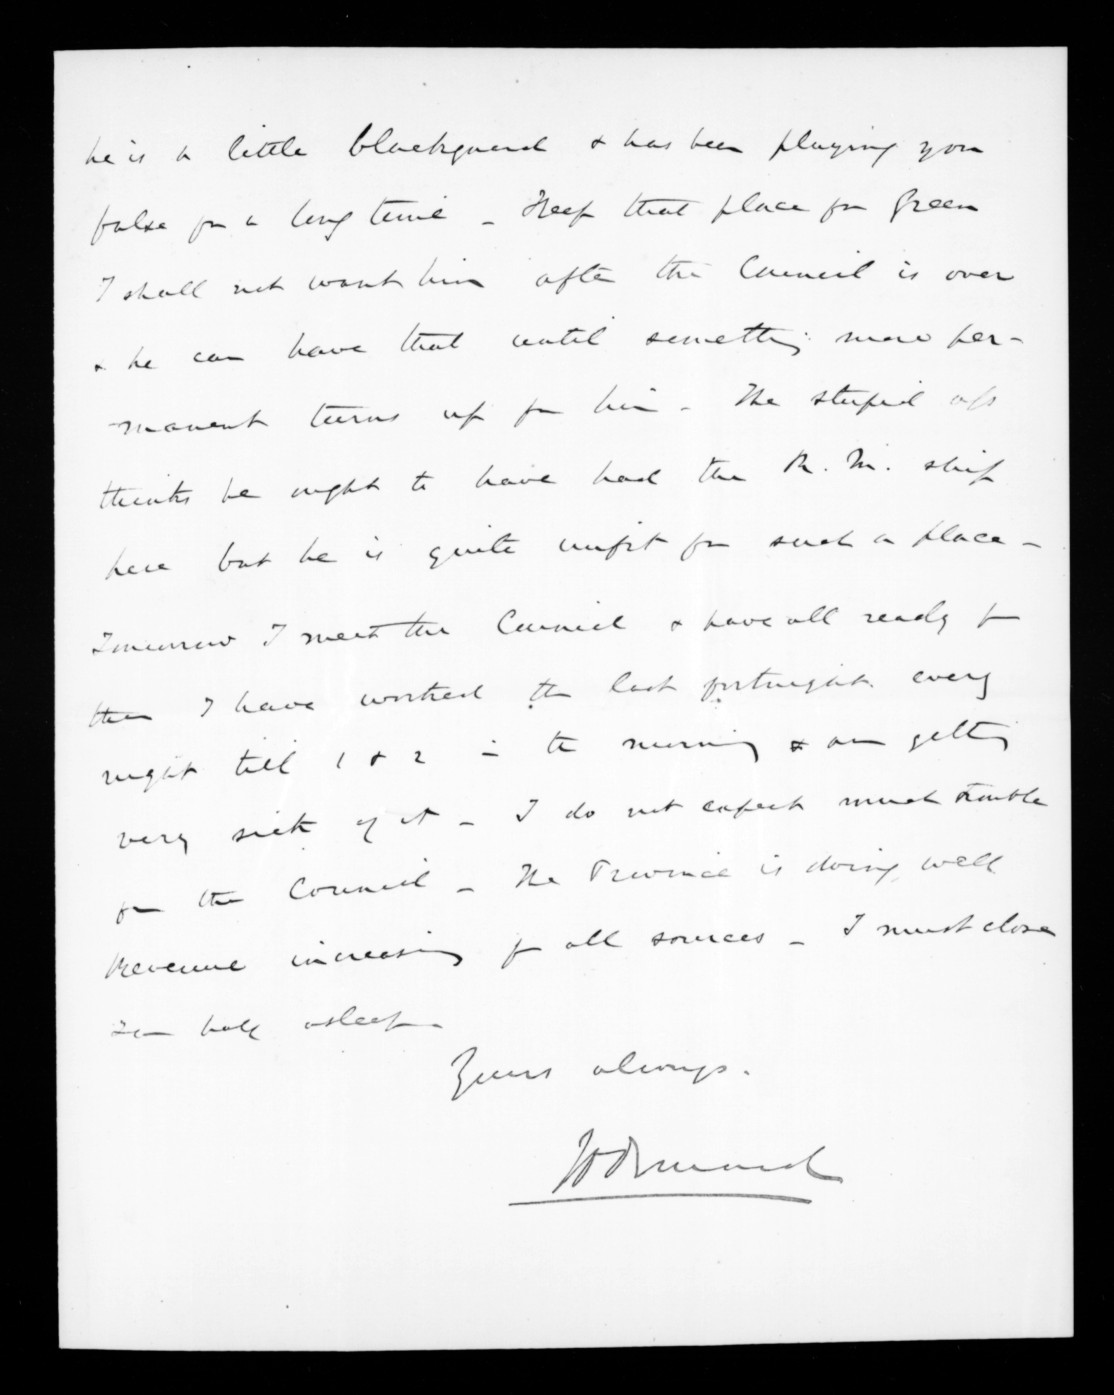 he is a little blackguard & has been playing you
false for a long time _ Keep that place for Green
I shall not want him after the Council is over
& he can have that until something more per-
manent turns up for him _ The stupid ass
thinks he ought to have had the R. M. ship
here but he is quite unfit for such a place _
Tomorrow I meet the Council & have all ready for
them I have worked the last fortnight every
night till 1 & 2 in the morning & am getting
very sick of it _ I do not expect much trouble
from the Council _ The Province is doing well
Revenue increasing from all sources _ I must close
I am half asleep _
Yours always.
JD Ormond